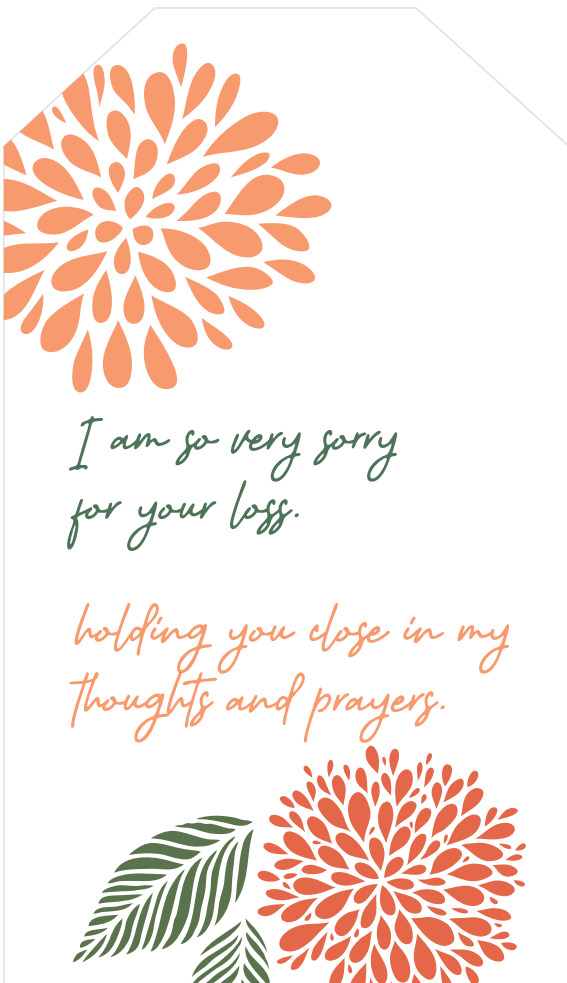 I am so very sorry
for your loss.
holding you close in my
thoughts and prayers.